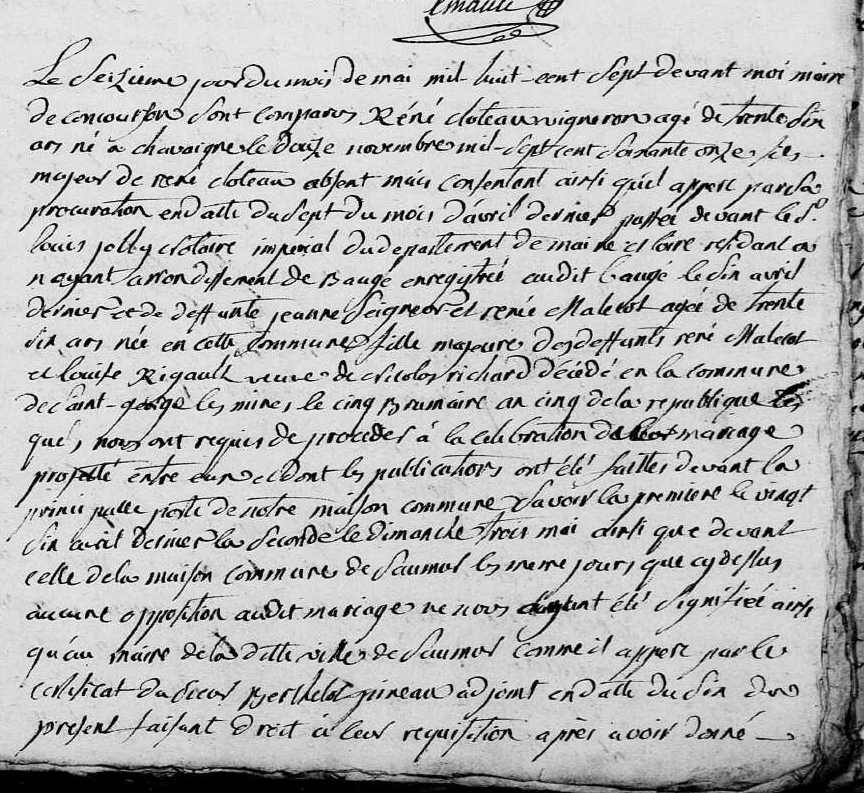 Le Seizieme jour du mois de mai mil huit-cent Sept devant moi maire
de concourson sont comparus Réné cloteau vigneron agé de trente Six
ans né a chavaigne le douze novembre mil-Sept cent Soixante onze fils
majeur de réné cloteau absent mais Consentant ainsi qu'il appert par Sa
procuration en datte du Sept du mois d'avril dernier passée devant le Sr
louis jolly Notaire imperial du departement de maine et loire residant a
noyant arrondissement de Baugé enregistrée audit baugé le Six avril
dernier et de deffunte jeanne Seigneur et renée Malecot agée de trente
Six ans née en cette Commune fille majeure des deffunts réné Malecot
et louise Rigault veuve de Nicolas richard décédé en la commune
de Saint-george les mines le cinq Brumaire an cinq de la republique les
quels nous ont requis de proceder à la celebration de leur mariage
projetté entre eux et dont les publications ont été faittes devant la
principalle porte de notre maison commune Savoir la premiere le vingt
Six avril dernier la Seconde le dimanche trois mai ainsi que devant
celle de la maison Commune de Saumur les meme jours que cy dessus
aucune opposition audit mariage ne nous ayant été Signifiée ainsi
qu'au maire de la ditte ville de Saumur Comme il appert par le
certificat du Sieur Berthelot pineau adjoint en datte du Six du
present faisant droit à leur requisition après avoir donné —